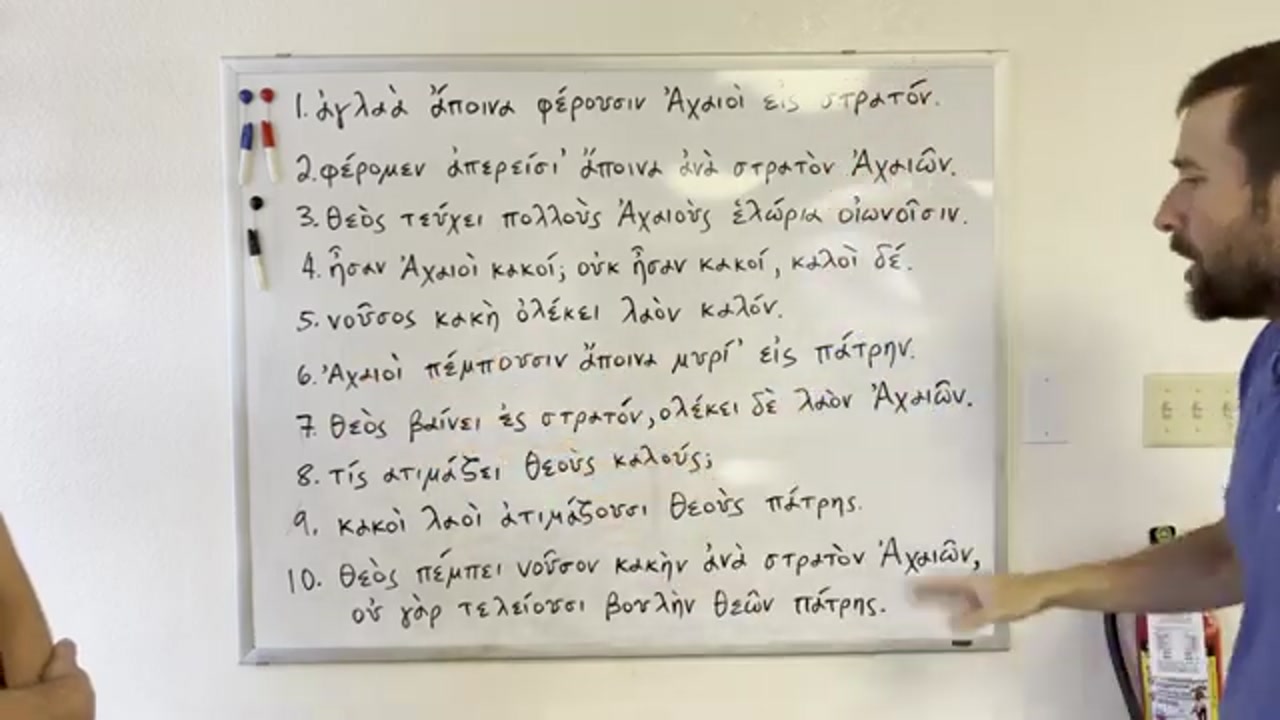 1. ἀγλαὰ ἄποινα φέρουσιν Ἀχαιοὶ εἰς στρατόν.
2. φέρομεν ἀπερείσι' ἄποινα ἀνὰ στρατὸν Ἀχαιῶν.
3. θεὸς τεύχει πολλοὺς Ἀχαιοὺς ἑλώρια οἰωνοῖσιν.
4. ἦσαν Ἀχαιοὶ κακοί; οὐκ ἦσαν κακοί, καλοὶ δέ.
5. νοῦσος κακὴ ὀλέκει λαὸν καλόν.
6. Ἀχαιοὶ πέμπουσιν ἄποινα μυρί' εἰς πάτρην.
7. θεὸς βαίνει ἐς στρατόν, ολέκει δὲ λαὸν Ἀχαιῶν.
8. τίς ατιμάζει θεοὺς καλούς;
9. κακοὶ λαοὶ ἀτιμάζουσι θεοὺς πάτρης.
10. θεὸς πέμπει νοῦσον κακὴν ἀνὰ στρατὸν Ἀχαιῶν,
οὐ γὰρ τελείουσι βουλὴν θεῶν πάτρης.